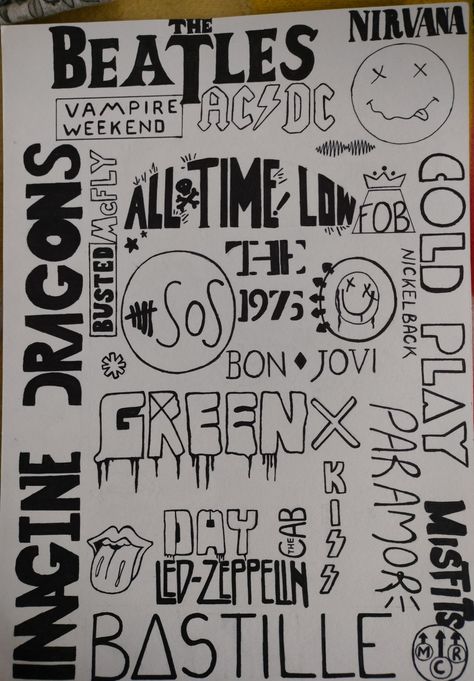 THE
BEATLES
NIRVANA
VAMPIRE
WEEKEND
AC⚡DC
IMAGINE DRAGONS
BUSTED
McFLY
ALL TIME LOW
FOB
COLD PLAY
NICKELBACK
SOS
THE
1975
BON ♦ JOVI
GREEN
X
DAY
PARAMORE
KISS
THE CAB
LED-ZEPPELIN
MISFITS
BΔSTILLE
M C R